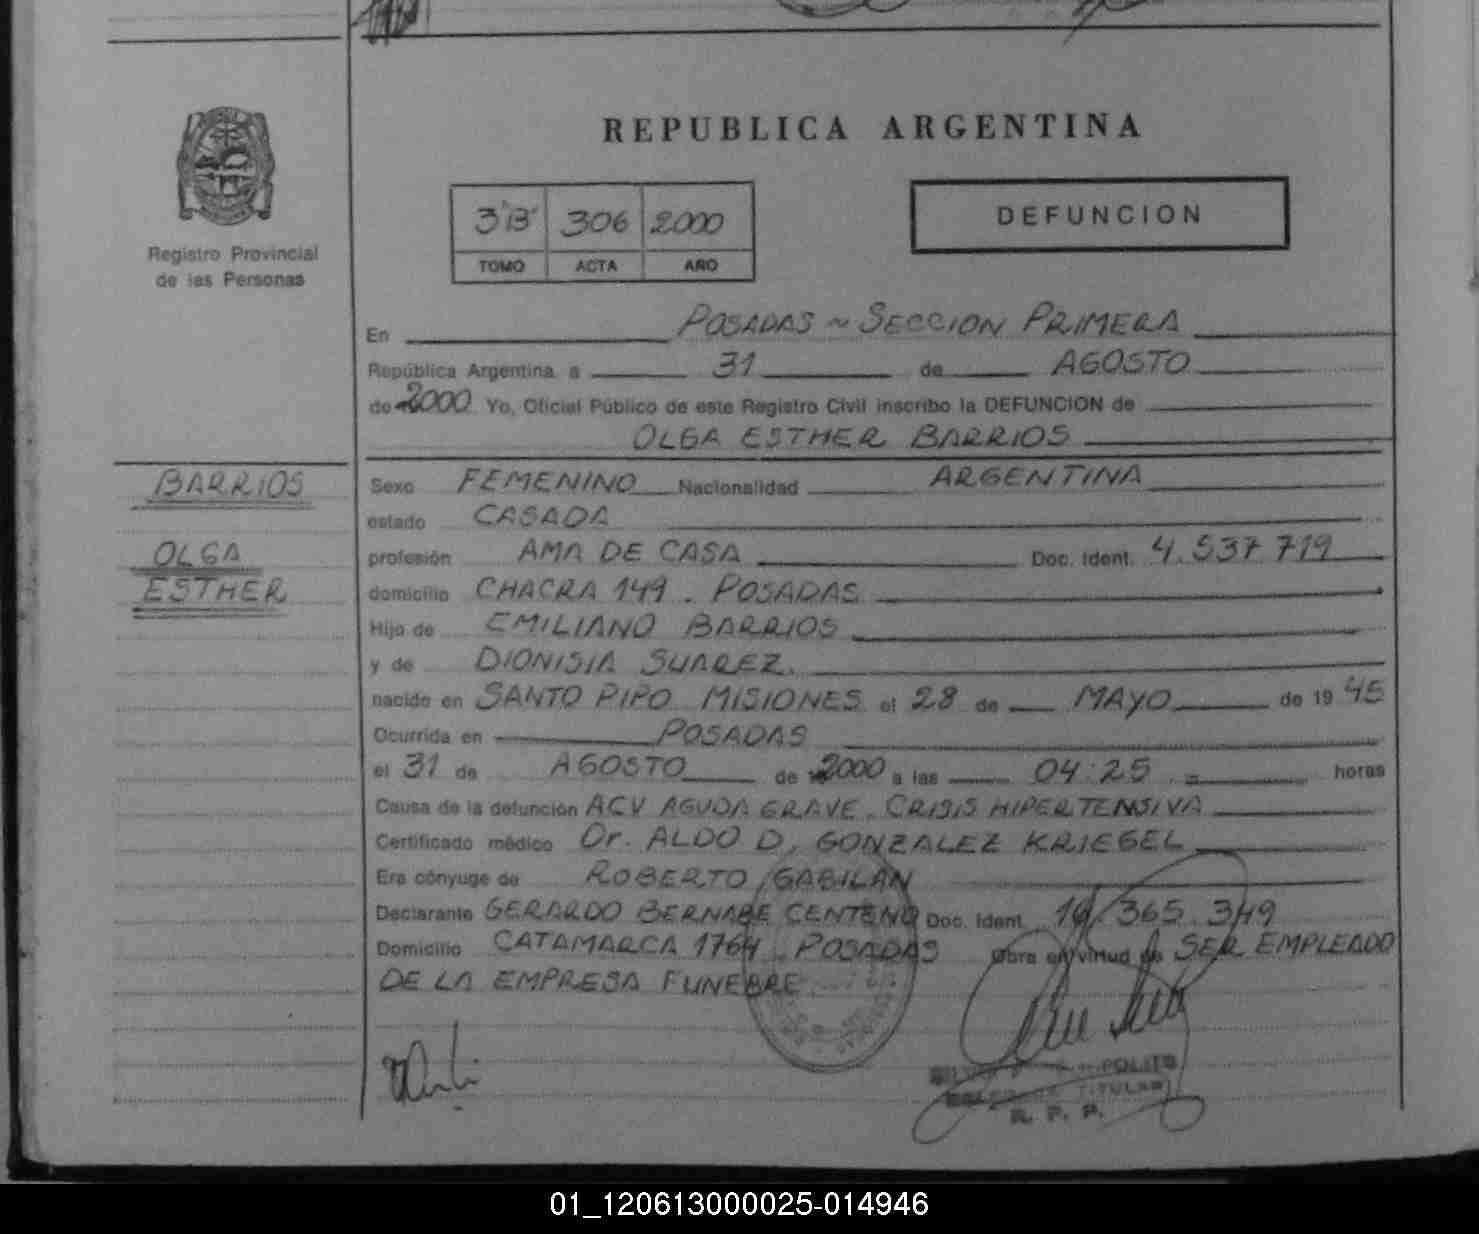 REPUBLICA ARGENTINA
3"B" 306 2000
TOMO ACTA AÑO
DEFUNCION
Registro Provincial
de las Personas
En POSADAS ~ SECCION PRIMERA
República Argentina a 31 de AGOSTO
de 2000 Yo, Oficial Público de este Registro Civil inscribo la DEFUNCION de
OLGA ESTHER BARRIOS
BARRIOS
OLGA
ESTHER
Sexo FEMENINO Nacionalidad ARGENTINA
estado CASADA
profesión AMA DE CASA Doc. Ident. 4.537.719
domicilio CHACRA 149. POSADAS
Hijo de EMILIANO BARRIOS
y de DIONISIA SUAREZ.
nacido en SANTO PIPO MISIONES el 28 de MAYO de 19 45
Ocurrida en POSADAS
el 31 de AGOSTO de 2000 a las 04:25 = horas
Causa de la defunción ACV AGUDA GRAVE. CRISIS HIPERTENSIVA
Certificado médico Dr. ALDO D. GONZALEZ KRIEGEL
Era cónyuge de ROBERTO GABILAN
Declarante GERARDO BERNABE CENTENO Doc. Ident. 16.365.349
Domicilio CATAMARCA 1764. POSADAS Obra en virtud de SER EMPLEADO
DE LA EMPRESA FUNEBRE
POLITO
TITULAR
R. P. P.
01_120613000025-014946